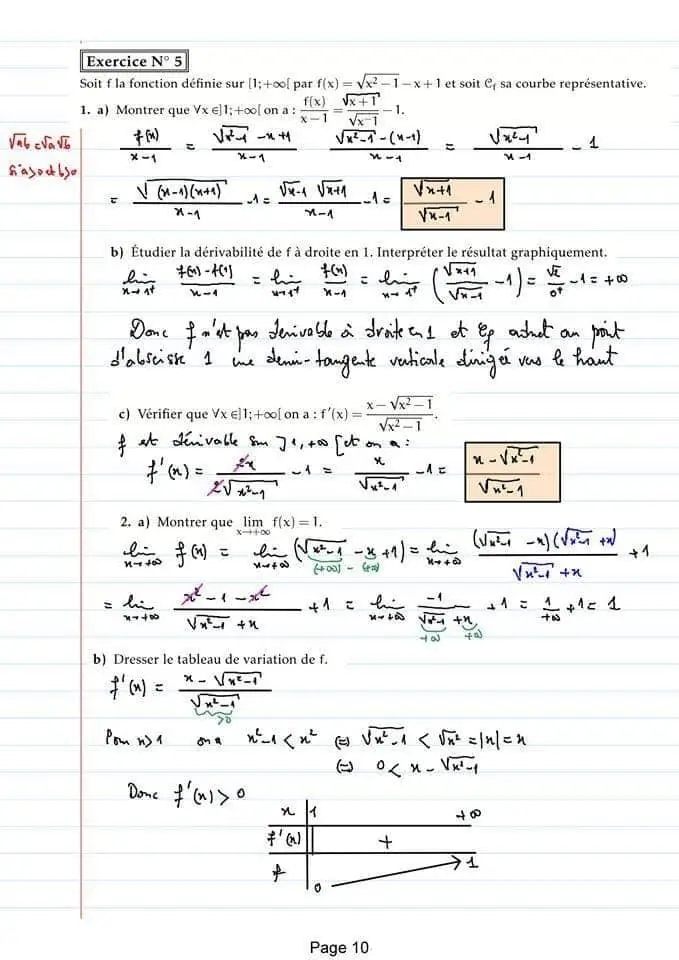 Exercice N° 5
Soit f la fonction définie sur [1;+∞[ par f(x) = √(x² − 1) − x + 1 et soit 𝒞f sa courbe représentative.
1. a) Montrer que ∀x ∈]1;+∞[ on a : f(x)/(x−1) = √(x+1)/√(x−1) − 1.
√ab = √a √b
si a≥0 et b≥0
f(x)/(x−1) = (√(x²−1) − x+1)/(x−1) (√(x²−1) − (x−1))/(x−1) = √(x²−1)/(x−1) − 1
= √((x−1)(x+1))/(x−1) − 1 = (√(x−1) √(x+1))/(x−1) − 1 = √(x+1)/√(x−1) − 1
b) Étudier la dérivabilité de f à droite en 1. Interpréter le résultat graphiquement.
lim x→1⁺ (f(x) − f(1))/(x−1) = lim x→1⁺ f(x)/(x−1) = lim x→1⁺ (√(x+1)/√(x−1) − 1) = √2/0⁺ − 1 = +∞
Donc f n'est pas dérivable à droite en 1 et 𝒞f admet au point
d'abscisse 1 une demi-tangente verticale dirigée vers le haut
c) Vérifier que ∀x ∈]1;+∞[ on a : f′(x) = (x − √(x² − 1))/√(x² − 1).
f est dérivable sur ]1,+∞[ et on a :
f'(x) = 2x/(2√(x²−1)) − 1 = x/√(x²−1) − 1 = (x − √(x²−1))/√(x²−1)
2. a) Montrer que lim x→+∞ f(x) = 1.
lim x→+∞ f(x) = lim x→+∞ (√(x²−1) − x + 1) = lim x→+∞ ((√(x²−1) − x)(√(x²−1) + x))/(√(x²−1) + x) + 1
(+∞) − (+∞)
= lim x→+∞ (x² − 1 − x²)/(√(x²−1) + x) + 1 = lim x→+∞ −1/(√(x²−1) + x) + 1 = 1/+∞ + 1 = 1
+∞ +∞
b) Dresser le tableau de variation de f.
f'(x) = (x − √(x²−1))/√(x²−1)
>0
Pour x>1 on a x²−1 < x² ⇔ √(x²−1) < √x² = |x| = x
⇔ 0 < x − √(x²−1)
Donc f'(x) > 0
x 1 +∞
f'(x) +
f 0 1
Page 10